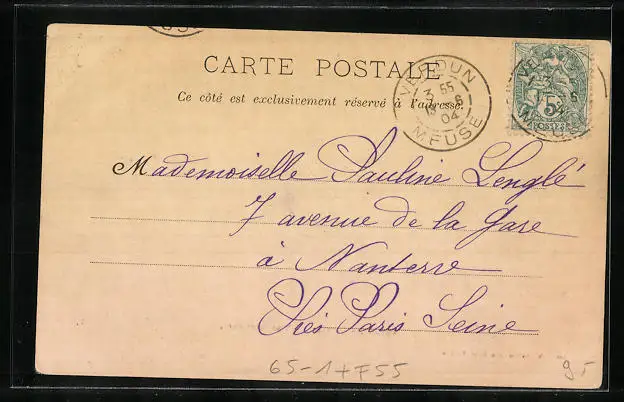 CARTE POSTALE
Ce côté est exclusivement réservé à l'adresse.
VERDUN
3 55
8
04
MEUSE
5
POSTES
Mademoiselle Pauline Lenglé
7 avenue de la Gare
à Nanterre
Près Paris Seine
65-1+F55
9.-